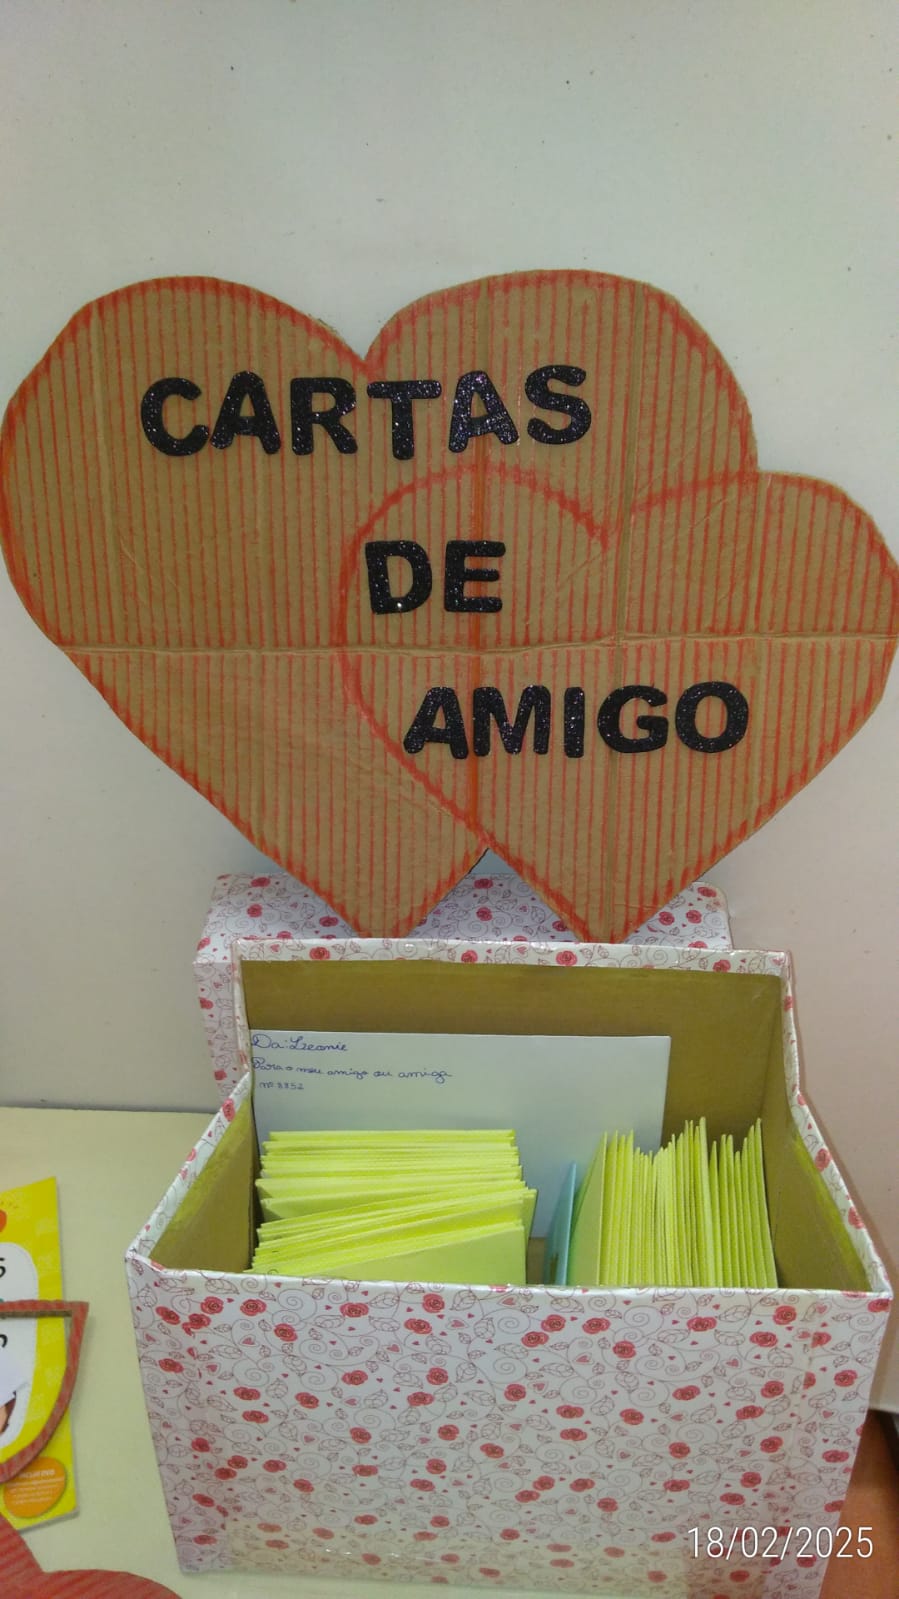 CARTAS
DE
AMIGO
Da: Leonie
Para o meu amigo ou amiga
nº 8852
18/02/2025